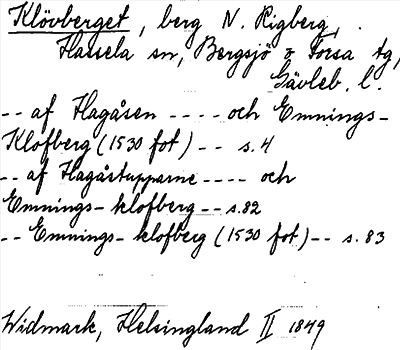 Klövberget, berg N. Rigberg,
Hassela sn, Bergsjö & Forsa tg,
Gävleb. l.
-- af Hagåsen ---- och Emnings-
Klofberg (1530 fot) -- s. 4
-- af Hagåstupparne ---- och
Emnings-klofberg -- s. 82
-- Emnings-klofberg (1530 fot) -- s. 83
Widmark, Helsingland II 1849